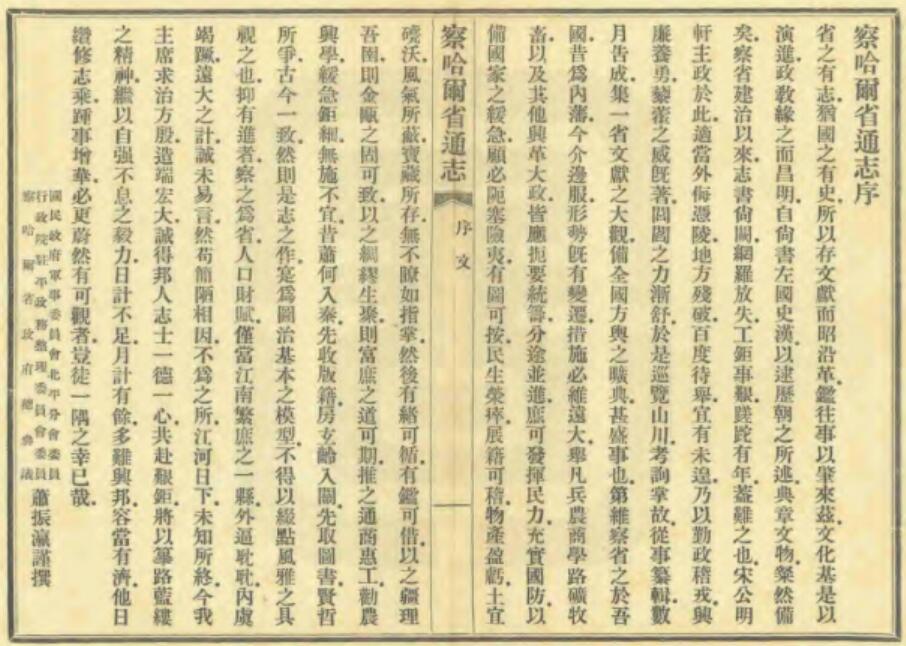 察哈爾省通志序
省之有志猶國之有史所以存文獻而昭沿革鑑往事以肇來茲文化基是以
演進政敎緣之而昌明自尙書左國史漢以逮歷朝之所述典章文物粲然備
矣察省建治以來志書尙闕網羅放失工鉅事艱蹉跎有年蓋難之也宋公明
軒主政於此適當外侮憑陵地方殘破百度待舉宜有未遑乃以勤政稽戎興
廉養勇藜藿之威旣著閭閻之力漸舒於是巡覽山川考詢掌故從事纂輯數
月告成集一省文獻之大觀備全國方輿之曠典甚盛事也第維察省之於吾
國昔爲內藩今介邊服形勢旣有變遷措施必維遠大舉凡兵農商學路礦牧
畜以及其他興革大政皆應扼要統籌分途並進庶可發揮民力充實國防以
備國家之緩急顧必阨塞險夷有圖可按民生榮瘁展籍可稽物產盈虧土宜
察哈爾省通志 序文 一
磽沃風氣所蔽寶藏所存無不瞭如指掌然後有緒可循有鑑可借以之疆理
吾圉則金甌之固可致以之綢繆生聚則富庶之道可期推之通商惠工勸農
興學緩急鉅細無施不宜昔蕭何入秦先收版籍房玄齡入關先取圖書賢哲
所爭古今一致然則是志之作寔爲圖治基本之模型不得以綴點風雅之具
視之也抑有進者察之爲省人口財賦僅當江南繁庶之一縣外逼耽耽內虞
竭蹶遠大之計誠未易言然苟簡陋相因不爲之所江河日下未知所終今我
主席求治方殷造端宏大誠得邦人志士一德一心共赴艱鉅將以篳路藍縷
之精神繼以自强不息之毅力日計不足月計有餘多難興邦容當有濟他日
纘修志乘踵事增華必更蔚然有可觀者豈徒一隅之幸已哉
國民政府軍事委員會北平分會委員
行政院駐平政務整理委員會委員
察哈爾省政府總參議
蕭振瀛謹撰